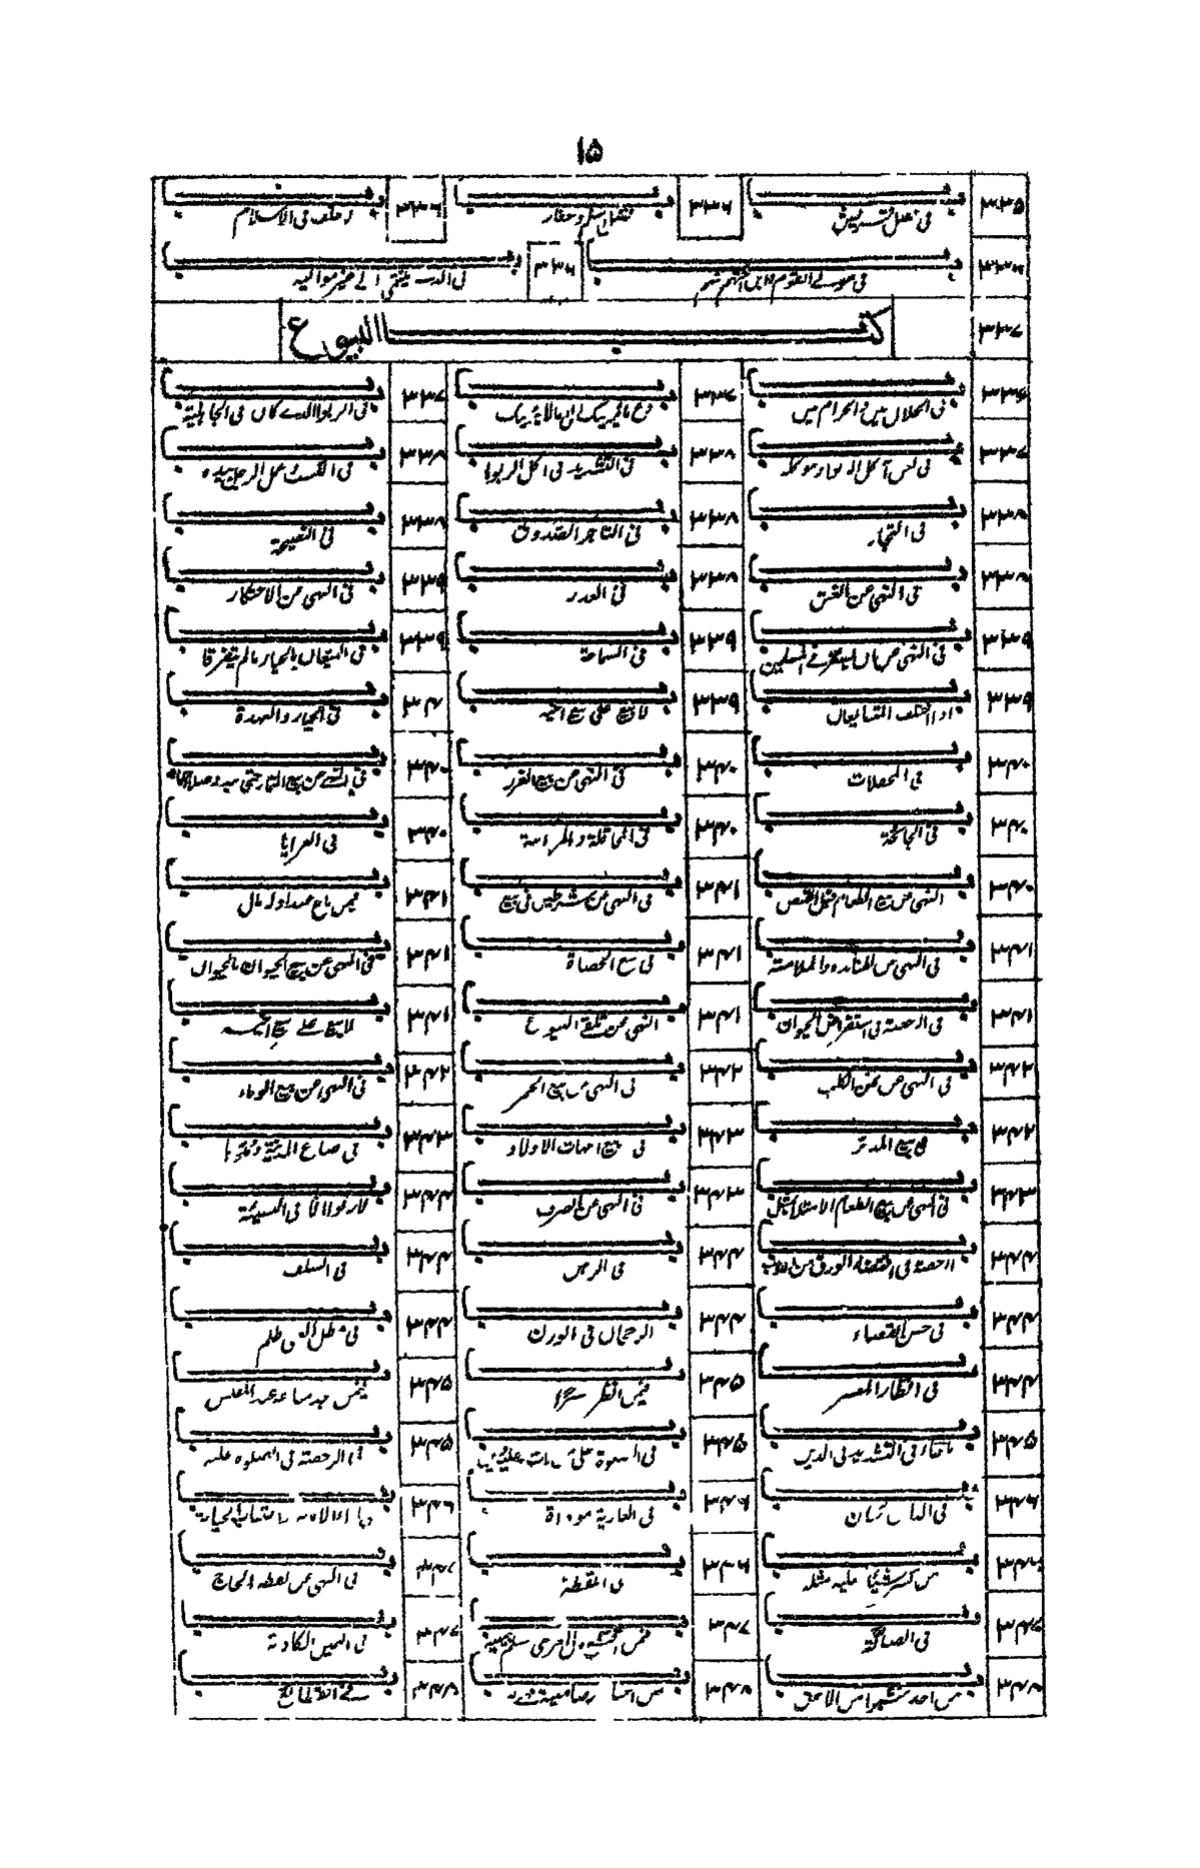 ۱۵
۳۳۵ باب فی فضل قریش ۳۳۶ باب فضل اسلم وغفار ۳۳۶ باب لا حلف فی الاسلام
۳۳۶ باب فی مولی القوم وابن اختهم منهم ۳۳۶ باب فی الذی ینتمی الی غیر موالیه
۳۳۷ کتاب البیوع
باب فی الحلال بین والحرام بین ۳۳۷ باب دع ما یریبک الی ما لا یریبک ۳۳۷ باب فی الربوا الذی کان فی الجاهلیة
۳۳۷ باب فی لعن آکل الربوا وموکله ۳۳۸ باب فی التشدید فی اکل الربوا ۳۳۸ باب فی الکسب وعمل الرجل بیده
۳۳۸ باب فی التجار ۳۳۸ باب فی التاجر الصدوق ۳۳۸ باب فی النصیحة
۳۳۸ باب فی النهی عن الغش ۳۳۸ باب فی الغدر ۳۳۹ باب فی النهی عن الاحتکار
۳۳۹ باب فی النهی عن ان یسعر فی المسلمین ۳۳۹ باب فی السماحة ۳۳۹ باب فی البیعان بالخیار ما لم یتفرقا
۳۳۹ باب اذا اختلف المتبایعان ۳۳۹ باب لا یبع علی بیع اخیه باب فی الخیار والعهدة
۳۴۰ باب فی المحفلات ۳۴۰ باب فی النهی عن بیع الغرر ۳۴۰ باب فی النهی عن بیع الثمار حتی یبدو صلاحها
۳۴۰ باب فی الجائحة ۳۴۰ باب فی المحاقلة والمزابنة ۳۴۰ باب فی العرایا
۳۴۰ باب النهی عن بیع الطعام قبل القبض ۳۴۱ باب فی النهی عن شرطین فی بیع ۳۴۱ باب فیمن باع عبدا وله مال
۳۴۱ باب فی النهی عن المنابذة والملامسة ۳۴۱ باب فی بیع الحصاة ۳۴۱ باب فی النهی عن بیع الحیوان بالحیوان
۳۴۱ باب فی الرخصة فی استقراض الحیوان ۳۴۱ باب النهی عن تلقی البیوع ۳۴۱ باب لا یبع علی بیع اخیه
۳۴۲ باب فی النهی عن ثمن الکلب ۳۴۲ باب فی النهی عن بیع الخمر ۳۴۲ باب فی النهی عن بیع الولاء
۳۴۲ باب فی بیع المدبر ۳۴۳ باب فی بیع امهات الاولاد ۳۴۳ باب فی صاع المدینة ومدها
۳۴۳ باب فی النهی عن بیع الطعام الا مثلا بمثل ۳۴۳ باب فی النهی عن الصرف ۳۴۴ باب لا ربوا الا فی النسیئة
۳۴۴ باب الرخصة فی اقتضاء الورق من الذهب ۳۴۴ باب فی الرهن ۳۴۴ باب فی السلف
۳۴۴ باب فی حسن القضاء ۳۴۴ باب الرجحان فی الوزن ۳۴۴ باب فی مطل الغنی ظلم
۳۴۴ باب فی انظار المعسر ۳۴۵ باب فیمن انظر معسرا ۳۴۵ باب فیمن وجد متاعه عند المفلس
۳۴۵ باب ما جاء فی التشدید فی الدین ۳۴۵ باب فی الصلوة علی من مات وعلیه دین ۳۴۵ باب فی الرخصة فی الصلوة علیه
۳۴۶ باب فی ۳۴۶ باب فی العاریة موداة ۳۴۶ باب فی اداء الامانة واجتناب الخیانة
۳۴۶ باب من کسر شیئا فعلیه مثله ۳۴۶ باب فی اللقطة ۳۴۷ باب فی النهی عن لقطة الحاج
۳۴۷ باب فی الضالة ۳۴۷ باب ۳۴۷ باب فی الیمین الکاذبة
۳۴۸ باب من اخذ شبرا من الارض ۳۴۸ باب من احیا ارضا میتة فهی له ۳۴۸ باب فی القطائع